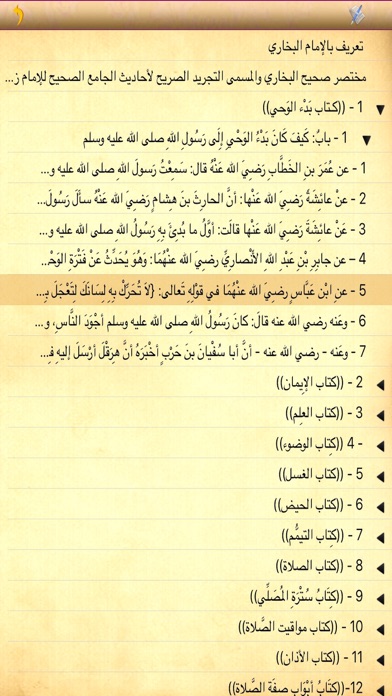 تعريف بالإمام البخاري
مختصر صحيح البخاري والمسمى التجريد الصريح لأحاديث الجامع الصحيح للإمام ز...
1 - ((كتاب بَدْء الوَحي))
1 - بابُ: كَيفَ كَانَ بَدْءُ الوَحْيِ إِلَى رَسُولِ الله صلى الله عليه وسلم
1 - عن عُمَرَ بنِ الخَطَّابِ رَضِيَ الله عَنْهُ قال: سَمِعْتُ رَسولَ الله صلى الله عليه و...
2 - عنْ عائشَةَ رَضِيَ الله عَنْها: أنَّ الحارِثَ بنَ هِشامٍ رَضِيَ الله عَنْهُ سألَ رَسُولَ...
3 - عَنْ عائشَةَ رَضِيَ الله عَنْها قالَت: أوَّلُ ما بُدِئَ بِهِ رَسُولُ الله صلى الله عليه و...
4 – عن جابِرِ بْنِ عَبْدِ الله الأَنْصارِيِّ رضِيَ الله عنْهُمَا: وَهُوَ يُحَدِّثُ عَنْ فَتْرَةِ الوَحْ...
5 - عن ابْن عَبَّاسٍ رضِيَ الله عنْهُمَا في قوْلِهِ تَعالى: {لاَ تُحَرِّكْ بِهِ لِسَانَكَ لِتَعْجَلَ بِ...
6 - وعَنه رضي الله عنه قالَ: كانَ رَسُولُ الله صلى الله عليه وسلم أجْوَدَ النَّاسِ، و...
7 - وعَنه - رضي الله عنه - أنَّ أبا سُفْيانَ بنَ حَرْبٍ أخْبَرَهُ أنَّ هِرَقْلَ أرْسَلَ إليهِ فِ...
2 - ((كتاب الإيمان))
3 - ((كتاب العِلم))
4 - ((كتاب الوضوء))
5 - ((كتاب الغسل))
6 - ((كتاب الحيض))
7 - ((كتاب التيمُّم))
8 - ((كتاب الصلاة))
9 - ((كِتَابُ سُتْرَةِ المُصَلِّي))
10 - ((كتاب مواقيت الصَّلاة))
11 - ((كتاب الأذان))
12-((كتَابُ أَبْوَابِ صِفَةِ الصَّلاة))